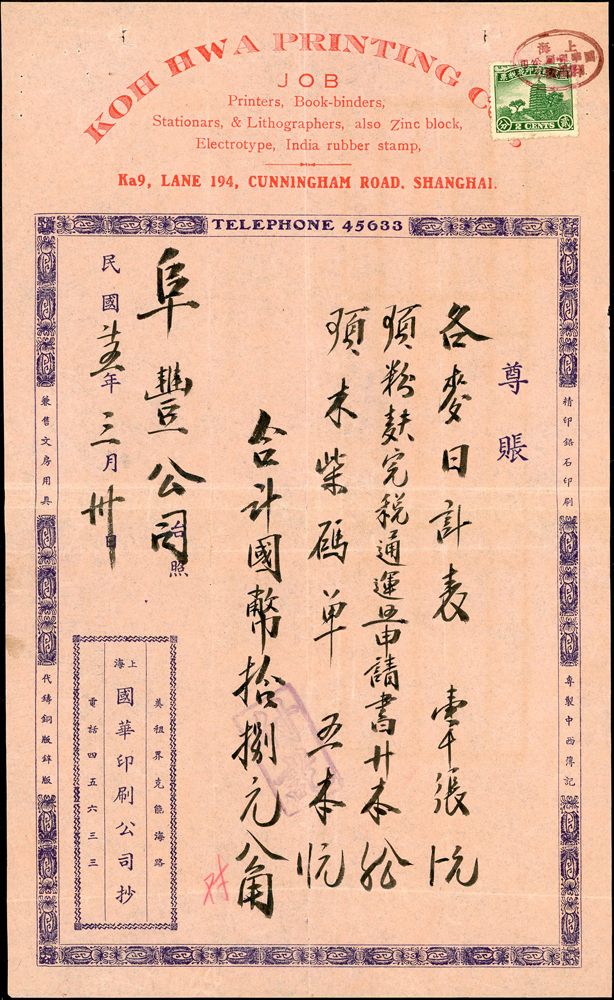 KOH HWA PRINTING Co.
JOB
Printers, Book-binders,
Stationars, & Lithographers, also Zinc block,
Electrotype, India rubber stamp,
Ka9, LANE 194, CUNNINGHAM ROAD. SHANGHAI.
2 CENTS
分
貳
上海
TELEPHONE 45633
精印鉛石印刷
專製中西簿記
尊賬
各麥日計表 壹千張
須粉麩完税通運申請書廿本
須木柴碼单 五本
合計國幣拾捌元八角
阜豐公司台照
民國廿五年三月卅日
兼售文房用具
代鑄銅版鋅版
美租界克能海路
上海國華印刷公司抄
電話四五六三三